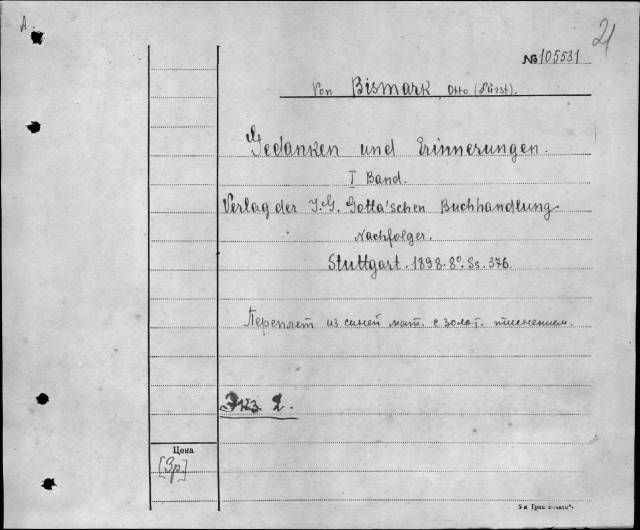 А.
21
№105531
Von Bismark, Otto (Fürst).
Gedanken und Erinnerungen.
I Band.
Verlag der J. G. Gotta'schen Buchhandlung
Nachfolger.
Stuttgart. 1898. 8º. Ss. 376.
Переплет из синей мат. с золот. тиснением.
Экз. 2.
Цена
[3р.]